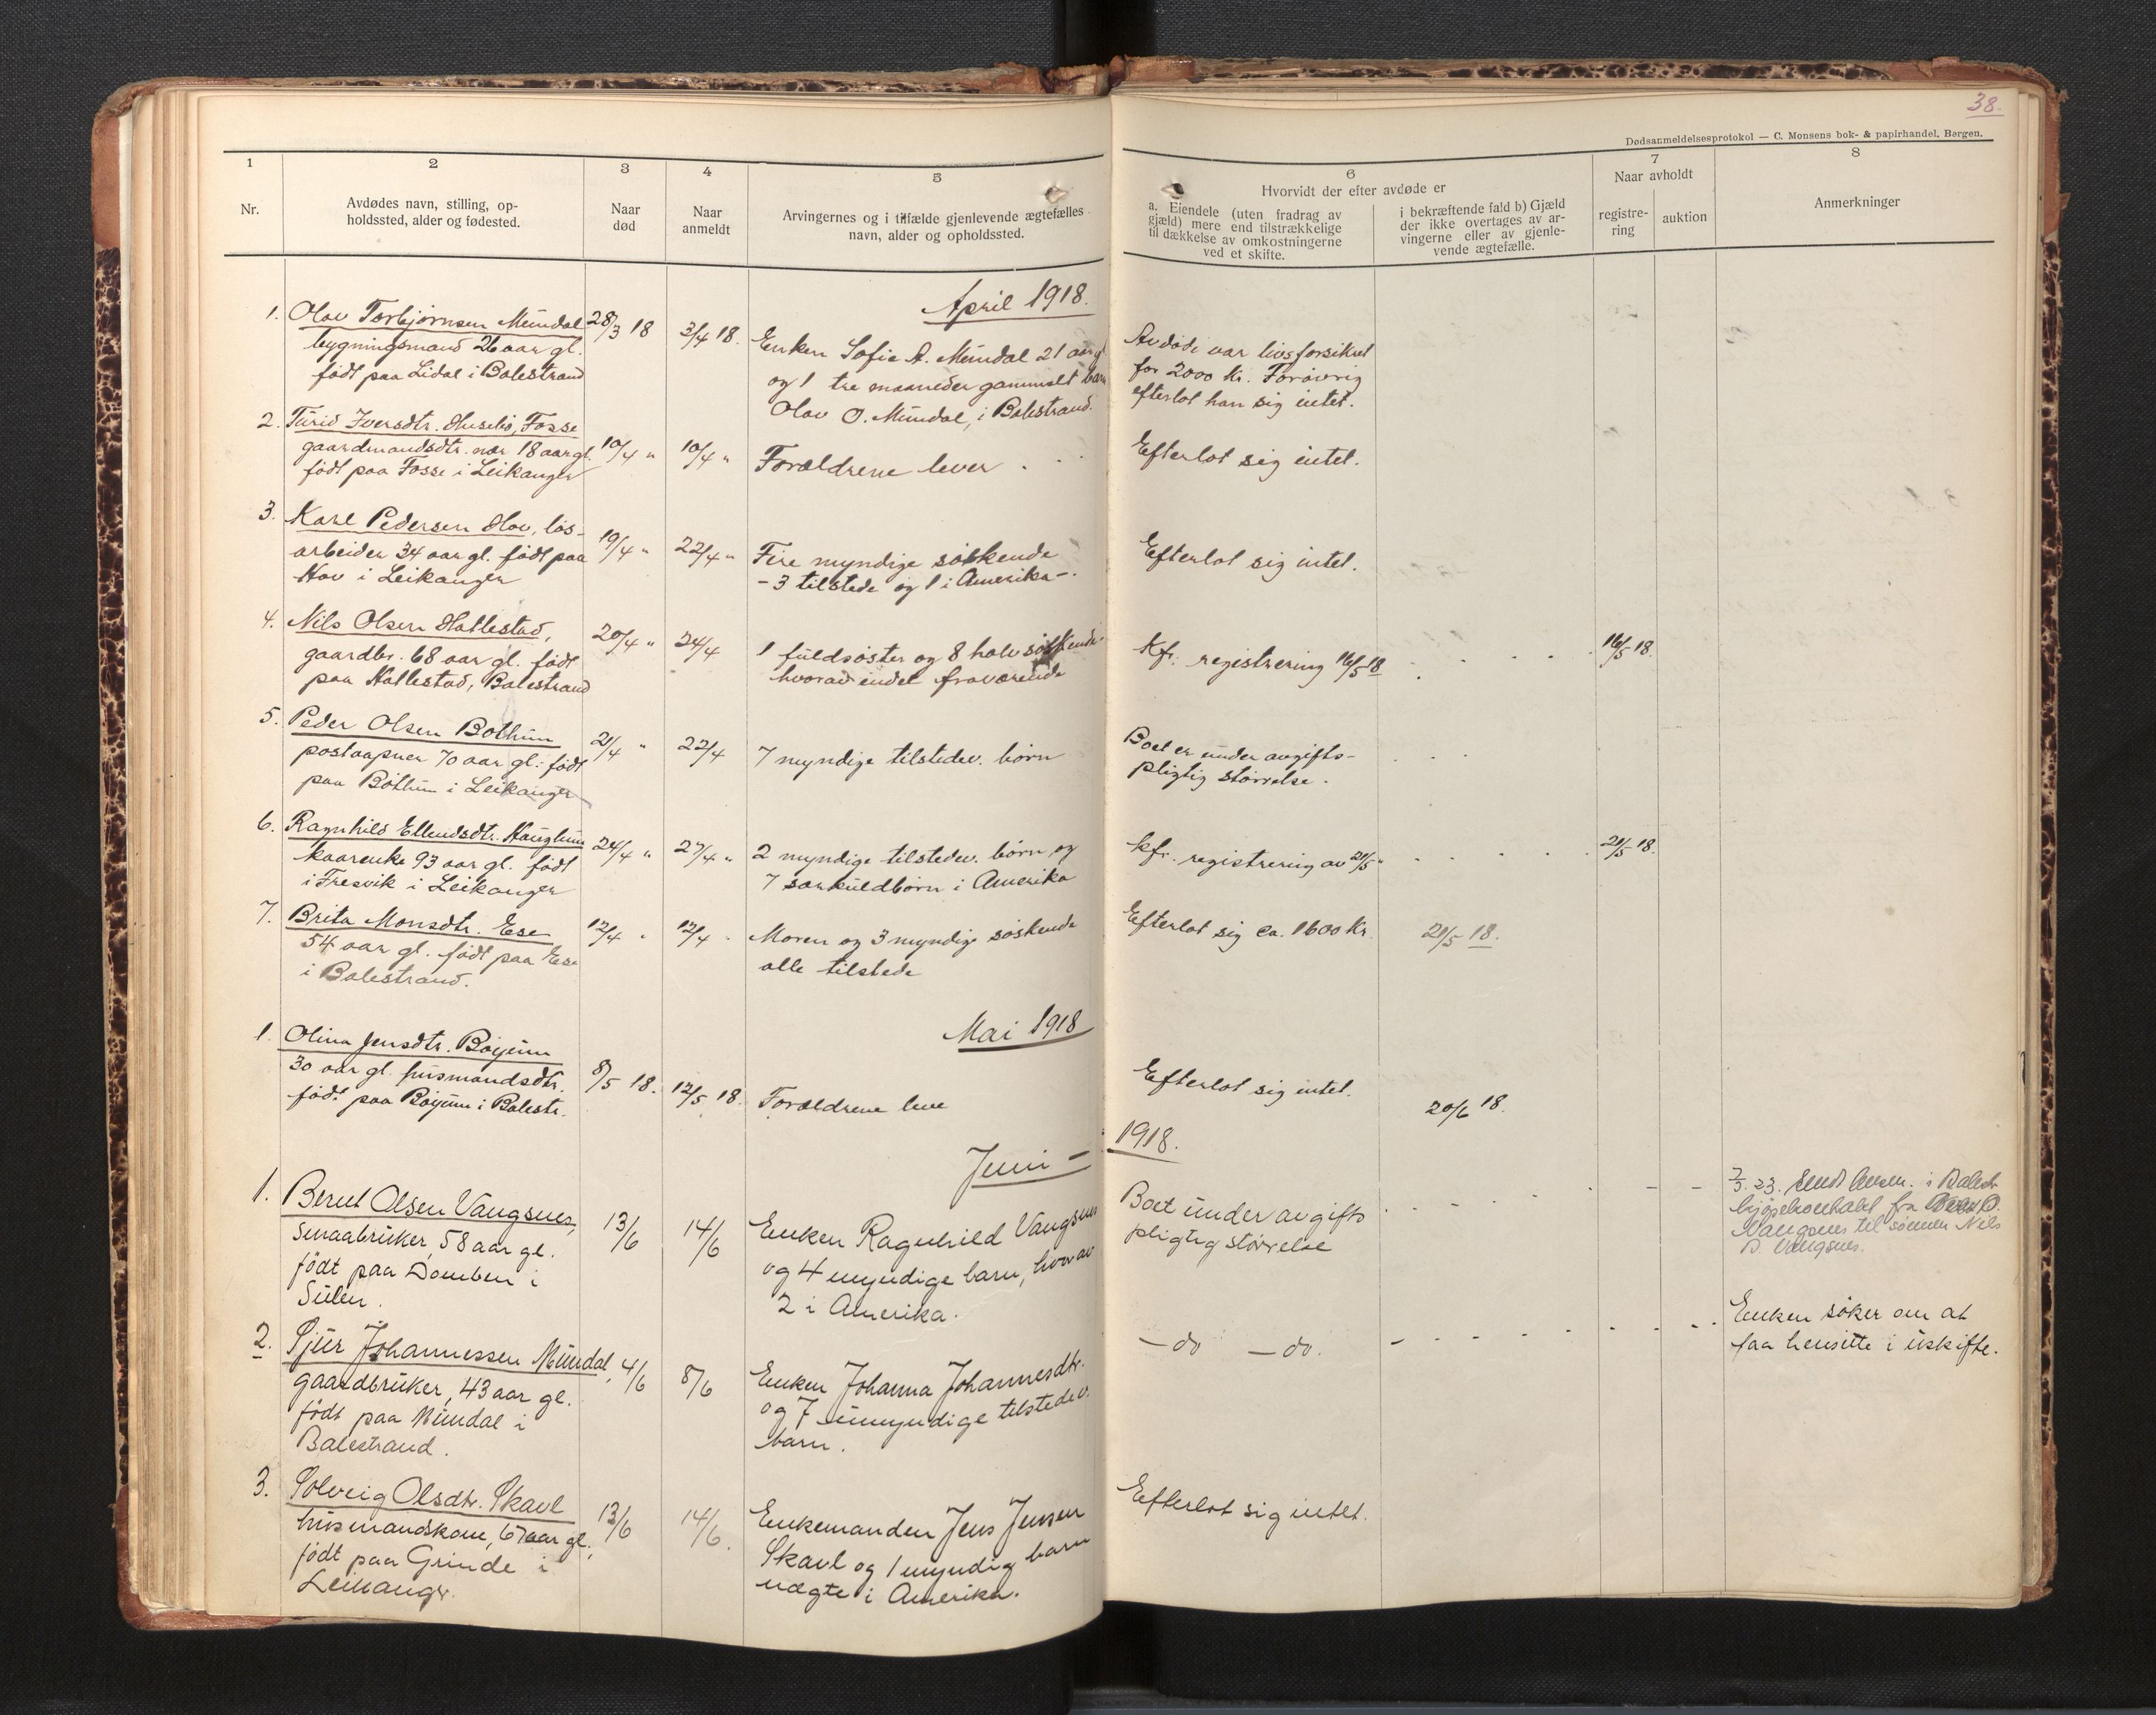 38.
Dødsanmeldelsesprotokol — C. Monsens bok- & papirhandel, Bergen.
1
2
3
4
5
6
7
8
Nr.
Avdødes navn, stilling, op-
holdssted, alder og fødested.
Naar
død
Naar
anmeldt
Arvingernes og i tilfælde gjenlevende ægtefælles
navn, alder og opholdssted.
Hvorvidt der efter avdøde er
a. Eiendele (uten fradrag av
gjæld) mere end tilstrækkelige
til dækkelse av omkostningerne
ved et skifte.
i bekræftende fald b) Gjæld
der ikke overtages av ar-
vingerne eller av gjenle-
vende ægtefælle.
Naar avholdt
registre-
ring
auktion
Anmerkninger
April 1918.
1. Olav Torbjørnsen Mundal
bygningsmand 26 aar gl.
født paa Lidal i Balestrand
28/3 18
3/4 18.
Enken Sofie A. Mundal 21 aar gl
og 1 tre maaneder gammelt barn
Olav O. Mundal, i Balestrand.
Avdøde var livsforsikret
for 2000 kr. Forøvrig
efterlot han sig intet.
2. Turid Iversdtr. Husebø, Fosse
gaardmandsdtr. nær 18 aar gl.
født paa Fosse i Leikanger
10/4 "
10/4 "
Forældrene lever
Efterlot sig intet.
3. Karl Pedersen Hov, løs-
arbeider 34 aar gl. født paa
Hov i Leikanger
19/4 "
22/4 "
Fire myndige søskende
- 3 tilstede og 1 i Amerika -.
Efterlot sig intet.
4. Nils Olsen Hatlestad,
gaardbr. 68 aar gl. født
paa Hatlestad, Balestrand
20/4 "
24/4
1 fuldsøster og 8 halvsøskende
hvorav endel fraværende
Kfr. registrering 16/5 18
16/5 18.
5. Peder Olsen Bothun
postaapner 70 aar gl. født
paa Bothun i Leikanger
21/4 "
22/4
7 myndige tilstedev. børn
Boet er under avgifts-
pligtig størrelse.
6. Ragnhild Ellendsdtr. Hauglum
kaarenke 93 aar gl. født
i Fresvik i Leikanger
24/4 "
27/4 "
2 myndige tilstedev. børn og
7 sønkuldbørn i Amerika
kfr. registrering av 21/5 "
21/5 18.
7. Brita Monsdtr. Ese
54 aar gl. født paa Ese
i Balestrand.
12/4 "
12/4 "
Moren og 3 myndige søskende
alle tilstede
Efterlot sig ca. 1600 Kr.
21/5 18.
Mai 1918
1. Olina Jensdtr. Bøyum
30 aar gl. husmandsdtr.
født paa Bøyum i Balestr.
8/5 18.
12/5 18.
Forældrene leve
Efterlot sig intet.
20/6 18.
Juni - 1918.
1. Bernt Olsen Vangsnes,
Smaabruker, 58 aar gl.
født paa Domben i
Sulen.
13/6
14/6
Enken Ragnhild Vangsnes
og 4 myndige barn, hvorav
2 i Amerika.
Boet under avgifts
pligtig størrelse
i Balestr
fra
Vangsnes til sønnen Nils
B. Vangsnes.
2. Sjur Johannessen Mundal,
gaardbruker, 43 aar gl.
født paa Mundal i
Balestrand.
4/6
8/6
Enken Johanna Johannesdtr.
og 7 umyndige tilstedev.
barn.
- do - do.
Enken søker om at
faa hensitte i uskifte.
3. Solveig Olsdtr. Skavl
husmandskone, 67 aar gl.,
født paa Grinde i
Leikanger.
13/6
14/6.
Enkemanden Jens Jensen
Skavl og 1 myndig barn
uægte i Amerika.
Efterlot sig intet.